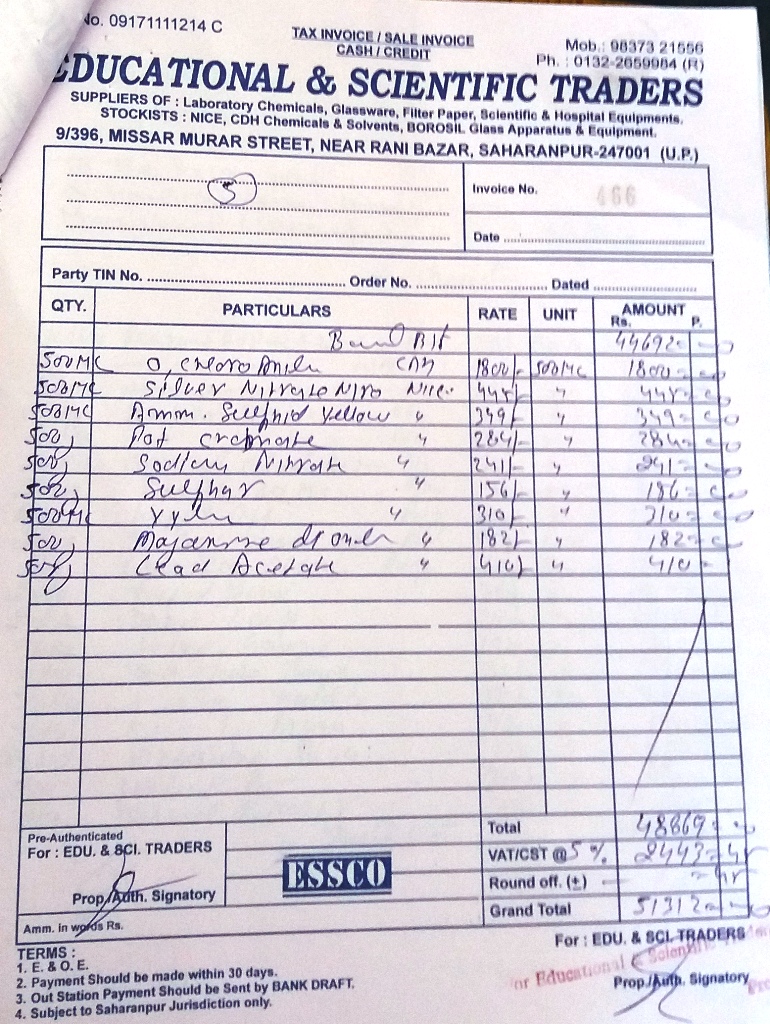 No. 09171111214 C
TAX INVOICE / SALE INVOICE
CASH / CREDIT
Mob.: 98373 21556
Ph. : 0132-2659984 (R)
EDUCATIONAL & SCIENTIFIC TRADERS
SUPPLIERS OF : Laboratory Chemicals, Glassware, Filter Paper, Scientific & Hospital Equipments.
STOCKISTS : NICE, CDH Chemicals & Solvents, BOROSIL Glass Apparatus & Equipment.
9/396, MISSAR MURAR STREET, NEAR RANI BAZAR, SAHARANPUR-247001 (U.P.)
5
Invoice No. 466
Date
Party TIN No. Order No. Dated
QTY. PARTICULARS RATE UNIT AMOUNT
Rs. P.
44692=
1800/- 1800=
Silver Nitrate 445/- " 445=
Amm. Sulphid Yellow " 349/- " 349=
" 284/- " 284=
Sodium Nitrate " 241/- " 241=
Sulphar " 156/- "
" 310/- " 310=
182/- " 182=
Lead Acetate " 410/- " 410=
Total 48869=
VAT/CST @ 5 % 2443=45
Round off. (±) = 45
Grand Total 51312=
Pre-Authenticated
For : EDU. & SCI. TRADERS
Prop./Auth. Signatory
ESSCO
Amm. in words Rs.
For : EDU. & SCI. TRADERS
For Educational & Scientific
Prop./Auth. Signatory
TERMS :
1. E. & O. E.
2. Payment Should be made within 30 days.
3. Out Station Payment Should be Sent by BANK DRAFT.
4. Subject to Saharanpur Jurisdiction only.